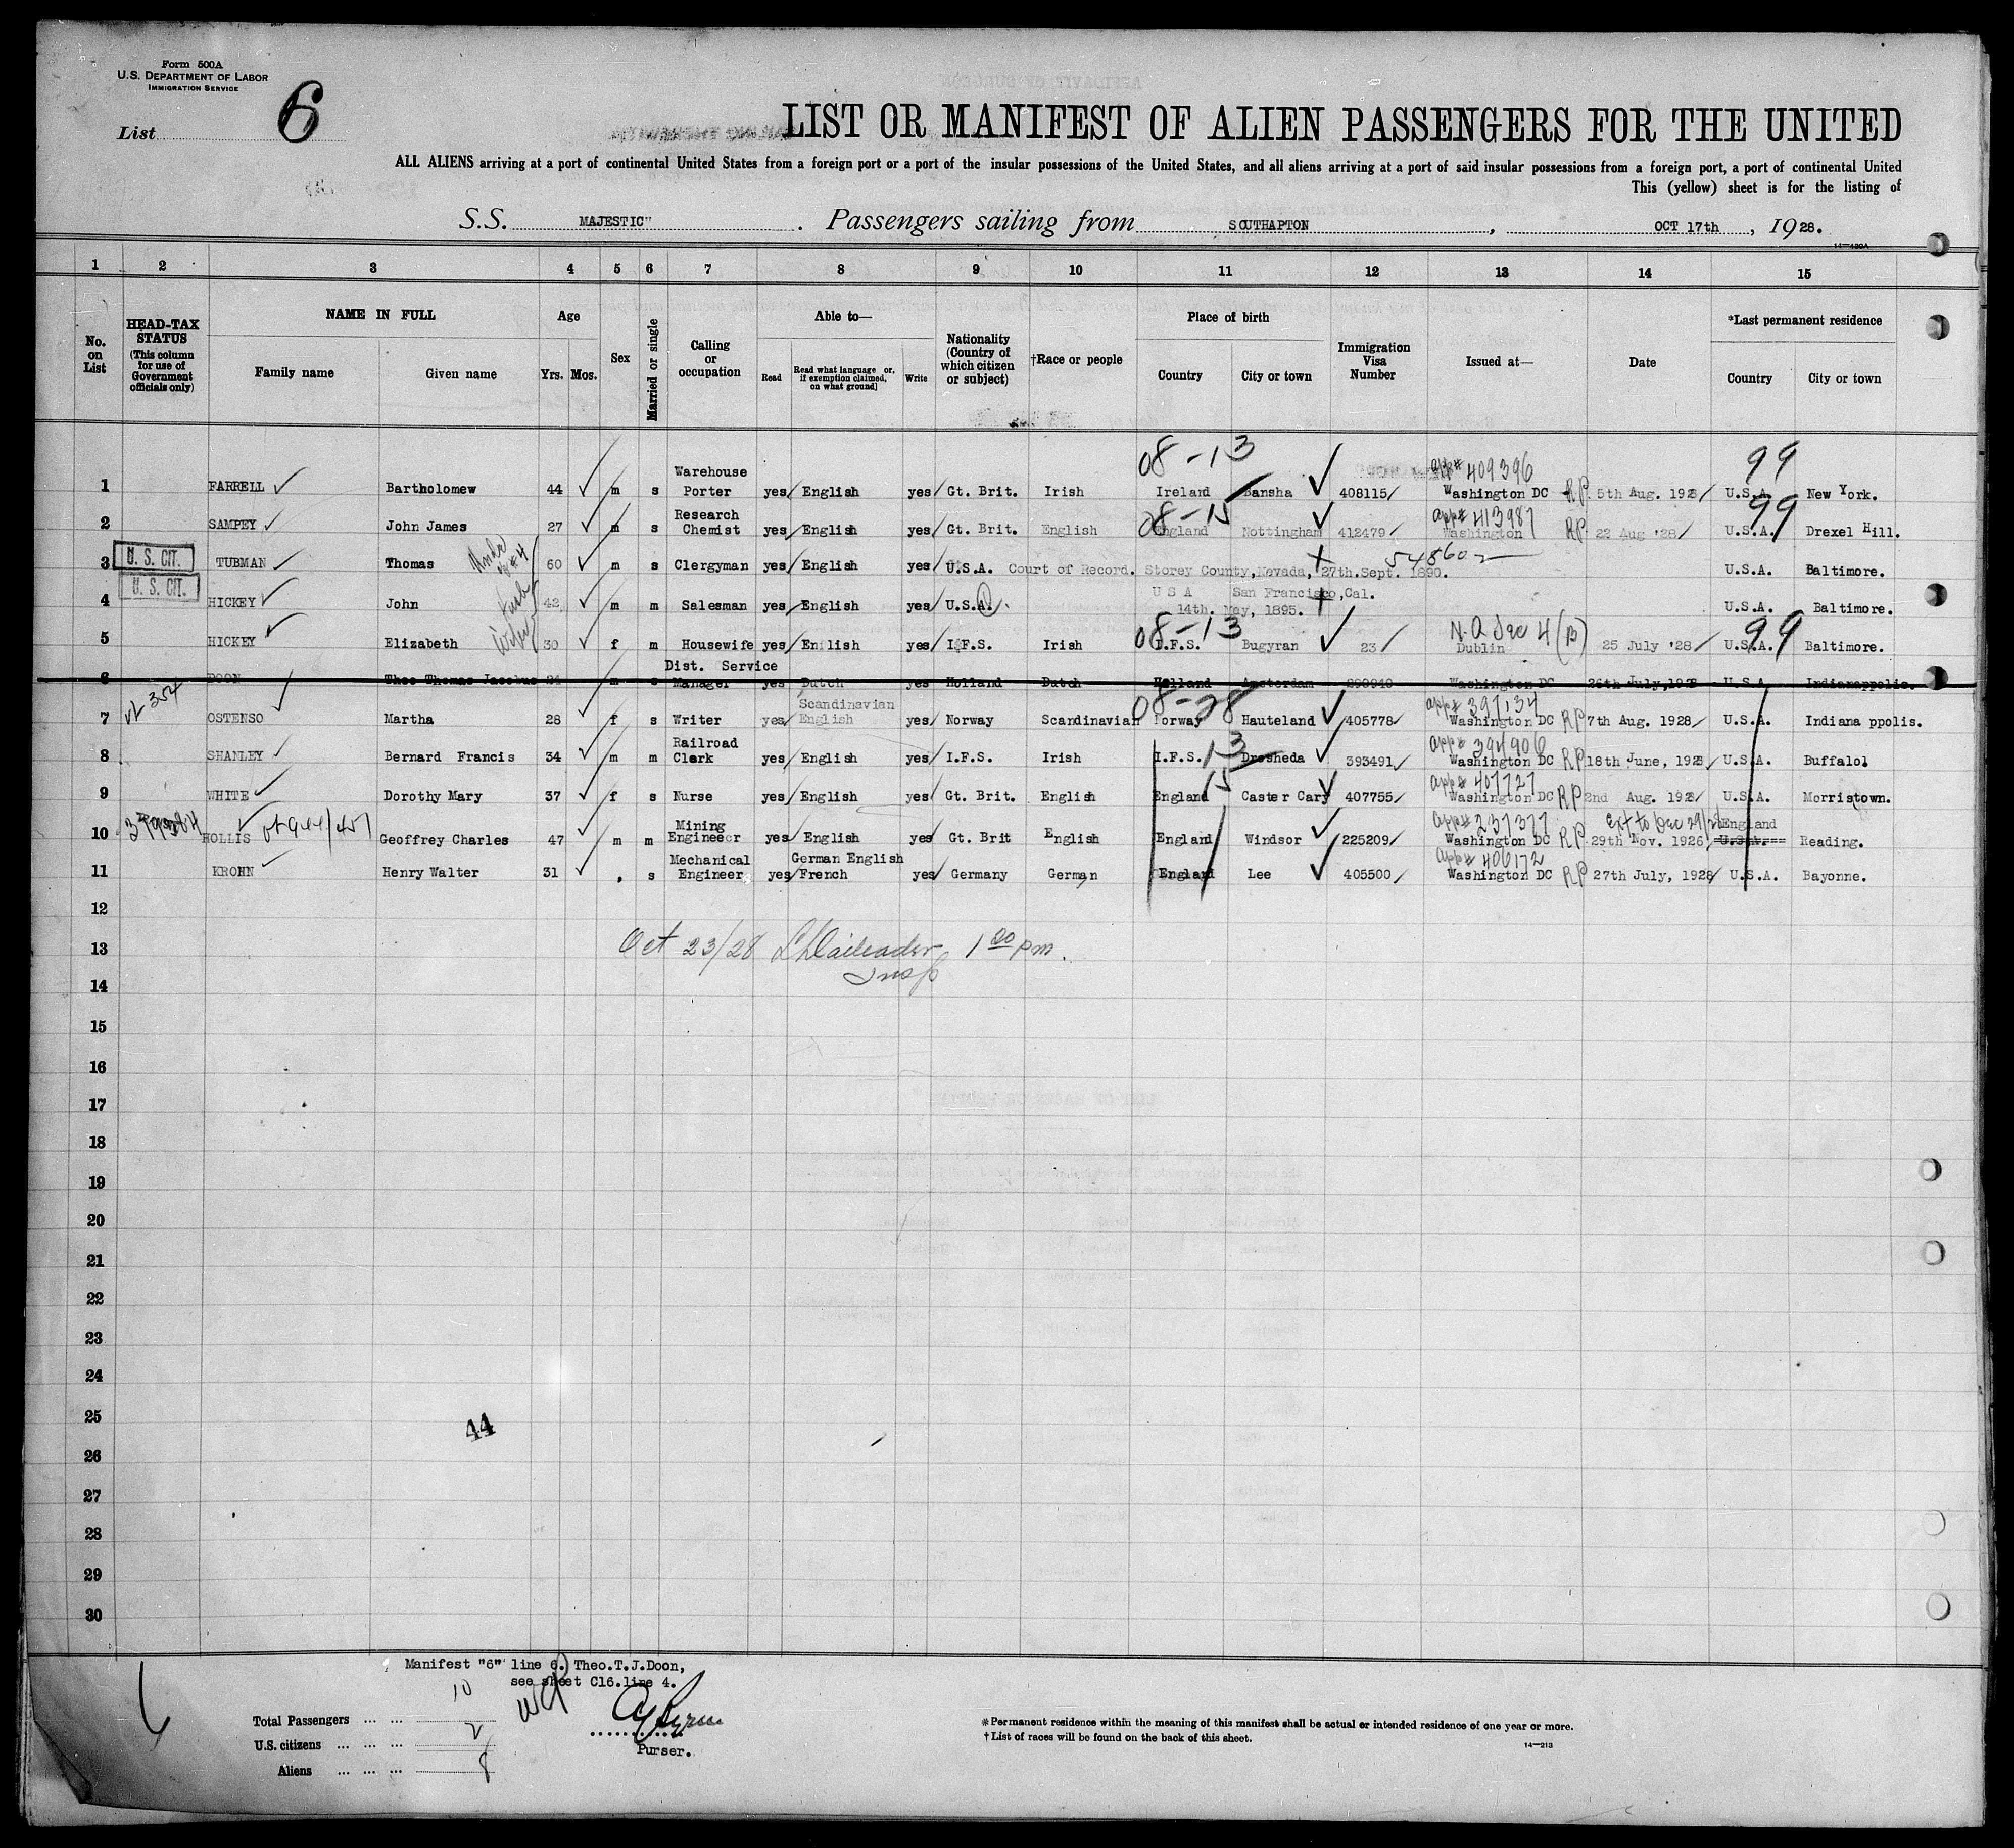 Form 500A
U.S. DEPARTMENT OF LABOR
IMMIGRATION SERVICE
List 6
LIST OR MANIFEST OF ALIEN PASSENGERS FOR THE UNITED
ALL ALIENS arriving at a port of continental United States from a foreign port or a port of the insular possessions of the United States, and all aliens arriving at a port of said insular possessions from a foreign port, a port of continental United
This (yellow) sheet is for the listing of
S.S. MAJESTIC" . Passengers sailing from SOUTHAPTON , OCT 17th , 1928.
14—430A
1 2 3 4 5 6 7 8 9 10 11 12 13 14 15
No. on List
HEAD-TAX STATUS (This column for use of Government officials only)
NAME IN FULL
Family name Given name
Age
Yrs. Mos.
Sex
Married or single
Calling or occupation
Able to—
Read Read what language or, if exemption claimed, on what ground] Write
Nationality (Country of which citizen or subject)
†Race or people
Place of birth
Country City or town
Immigration Visa Number
Issued at—
Date
*Last permanent residence
Country City or town
08-13 99
Warehouse app# 409396
1 FARRELL Bartholomew 44 m s Porter yes English yes Gt. Brit. Irish Ireland Bansha 408115 Washington DC RP 5th Aug. 1928 U.S.A. New York.
Research 08-15 app# 413987 99
2 SAMPEY John James 27 m s Chemist yes English yes Gt. Brit. English England Nottingham 412479 Washington RP 22 Aug '28 U.S.A. Drexel Hill.
U. S. CIT.
3 TUBMAN Thomas 60 m s Clergyman yes English yes U.S.A. Court of Record. Storey County, Nevada, 27th. Sept. 1890. 548602 U.S.A. Baltimore.
U. S. CIT.
U S A San Francisco, Cal.
4 HICKEY John 42 m m Salesman yes English yes U.S.A. 14th. May, 1895. U.S.A. Baltimore.
08-13 N.Q Sec 4 (B) 99
5 HICKEY Elizabeth Wife 30 f m Housewife yes Enilish yes I.F.S. Irish I.F.S. Bugyran 23 Dublin 25 July '28 U.S.A. Baltimore.
Dist. Service
6 DOON Theo Thomas Jacobus m s Manager yes Dutch yes Holland Dutch Holland Amsterdam Washington DC 26th July, 1928 U.S.A. Indianappolis.
Scandinavian 08-28 app# 397134
7 OSTENSO Martha 28 f s Writer yes English yes Norway Scandinavian Norway Hauteland 405778 Washington DC RP 7th Aug. 1928 U.S.A. Indiana ppolis.
Railroad 13 app# 394906
8 SHANLEY Bernard Francis 34 m m Clerk yes English yes I.F.S. Irish I.F.S. Drosheda 393491 Washington DC RP 18th June, 1928 U.S.A. Buffalol
15 app# 407727
9 WHITE Dorothy Mary 37 f s Nurse yes English yes Gt. Brit. English England Caster Cary 407755 Washington DC RP 2nd Aug. 1928 U.S.A. Morristown.
Mining app# 237377 Ext to Dec 29/28 England
10 HOLLIS Geoffrey Charles 47 m m Engineeer yes English yes Gt. Brit English England Windsor 225209 Washington DC RP 29th Nov. 1926 U.S.A. Reading.
Mechanical German English app# 406172
11 KRONN Henry Walter 31 s Engineer yes French yes Germany German England Lee 405500 Washington DC RP 27th July, 1928 U.S.A. Bayonne.
12
13 Oct 23/28 1 00 pm.
Insp
14
15
16
17
18
19
20
21
22
23
24
25 44
26
27
28
29
30
Manifest "6" line 6. Theo.T.J.Doon,
see sheet C16.line 4.
Total Passengers ... ... 10
U.S. citizens ... ... ... 2
Aliens ... ... ... 8
Purser.
*Permanent residence within the meaning of this manifest shall be actual or intended residence of one year or more.
†List of races will be found on the back of this sheet.
14—213